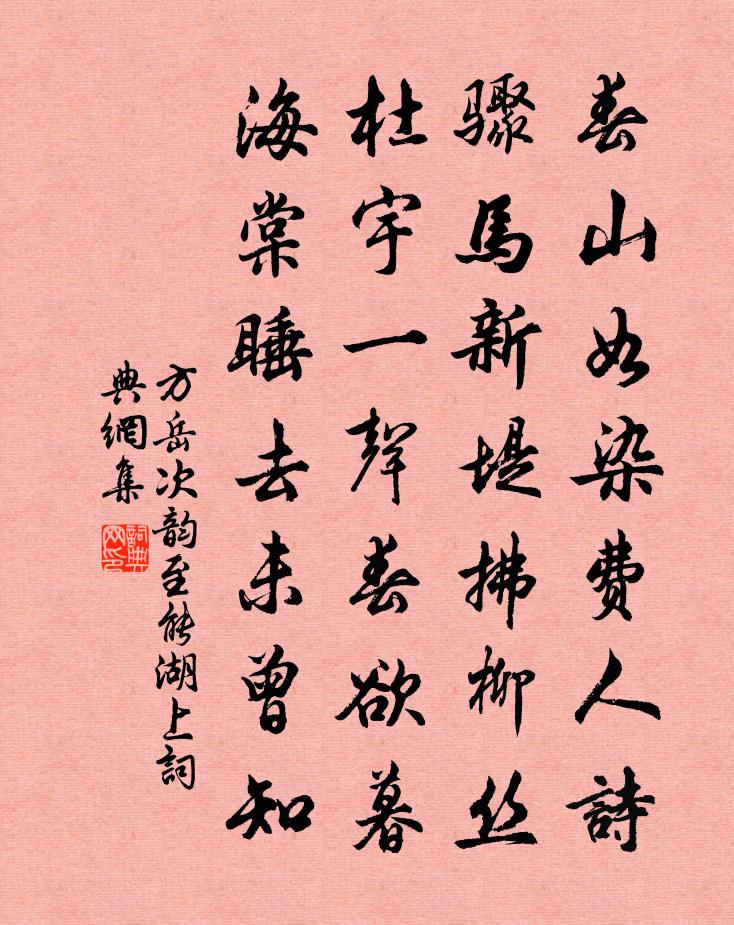 春山如染费人詩
驟馬新堤拂柳丝
杜宇一聲春欲暮
海棠睡去未曾知
方岳次韵至能湖上詞
典網集
詞典网印